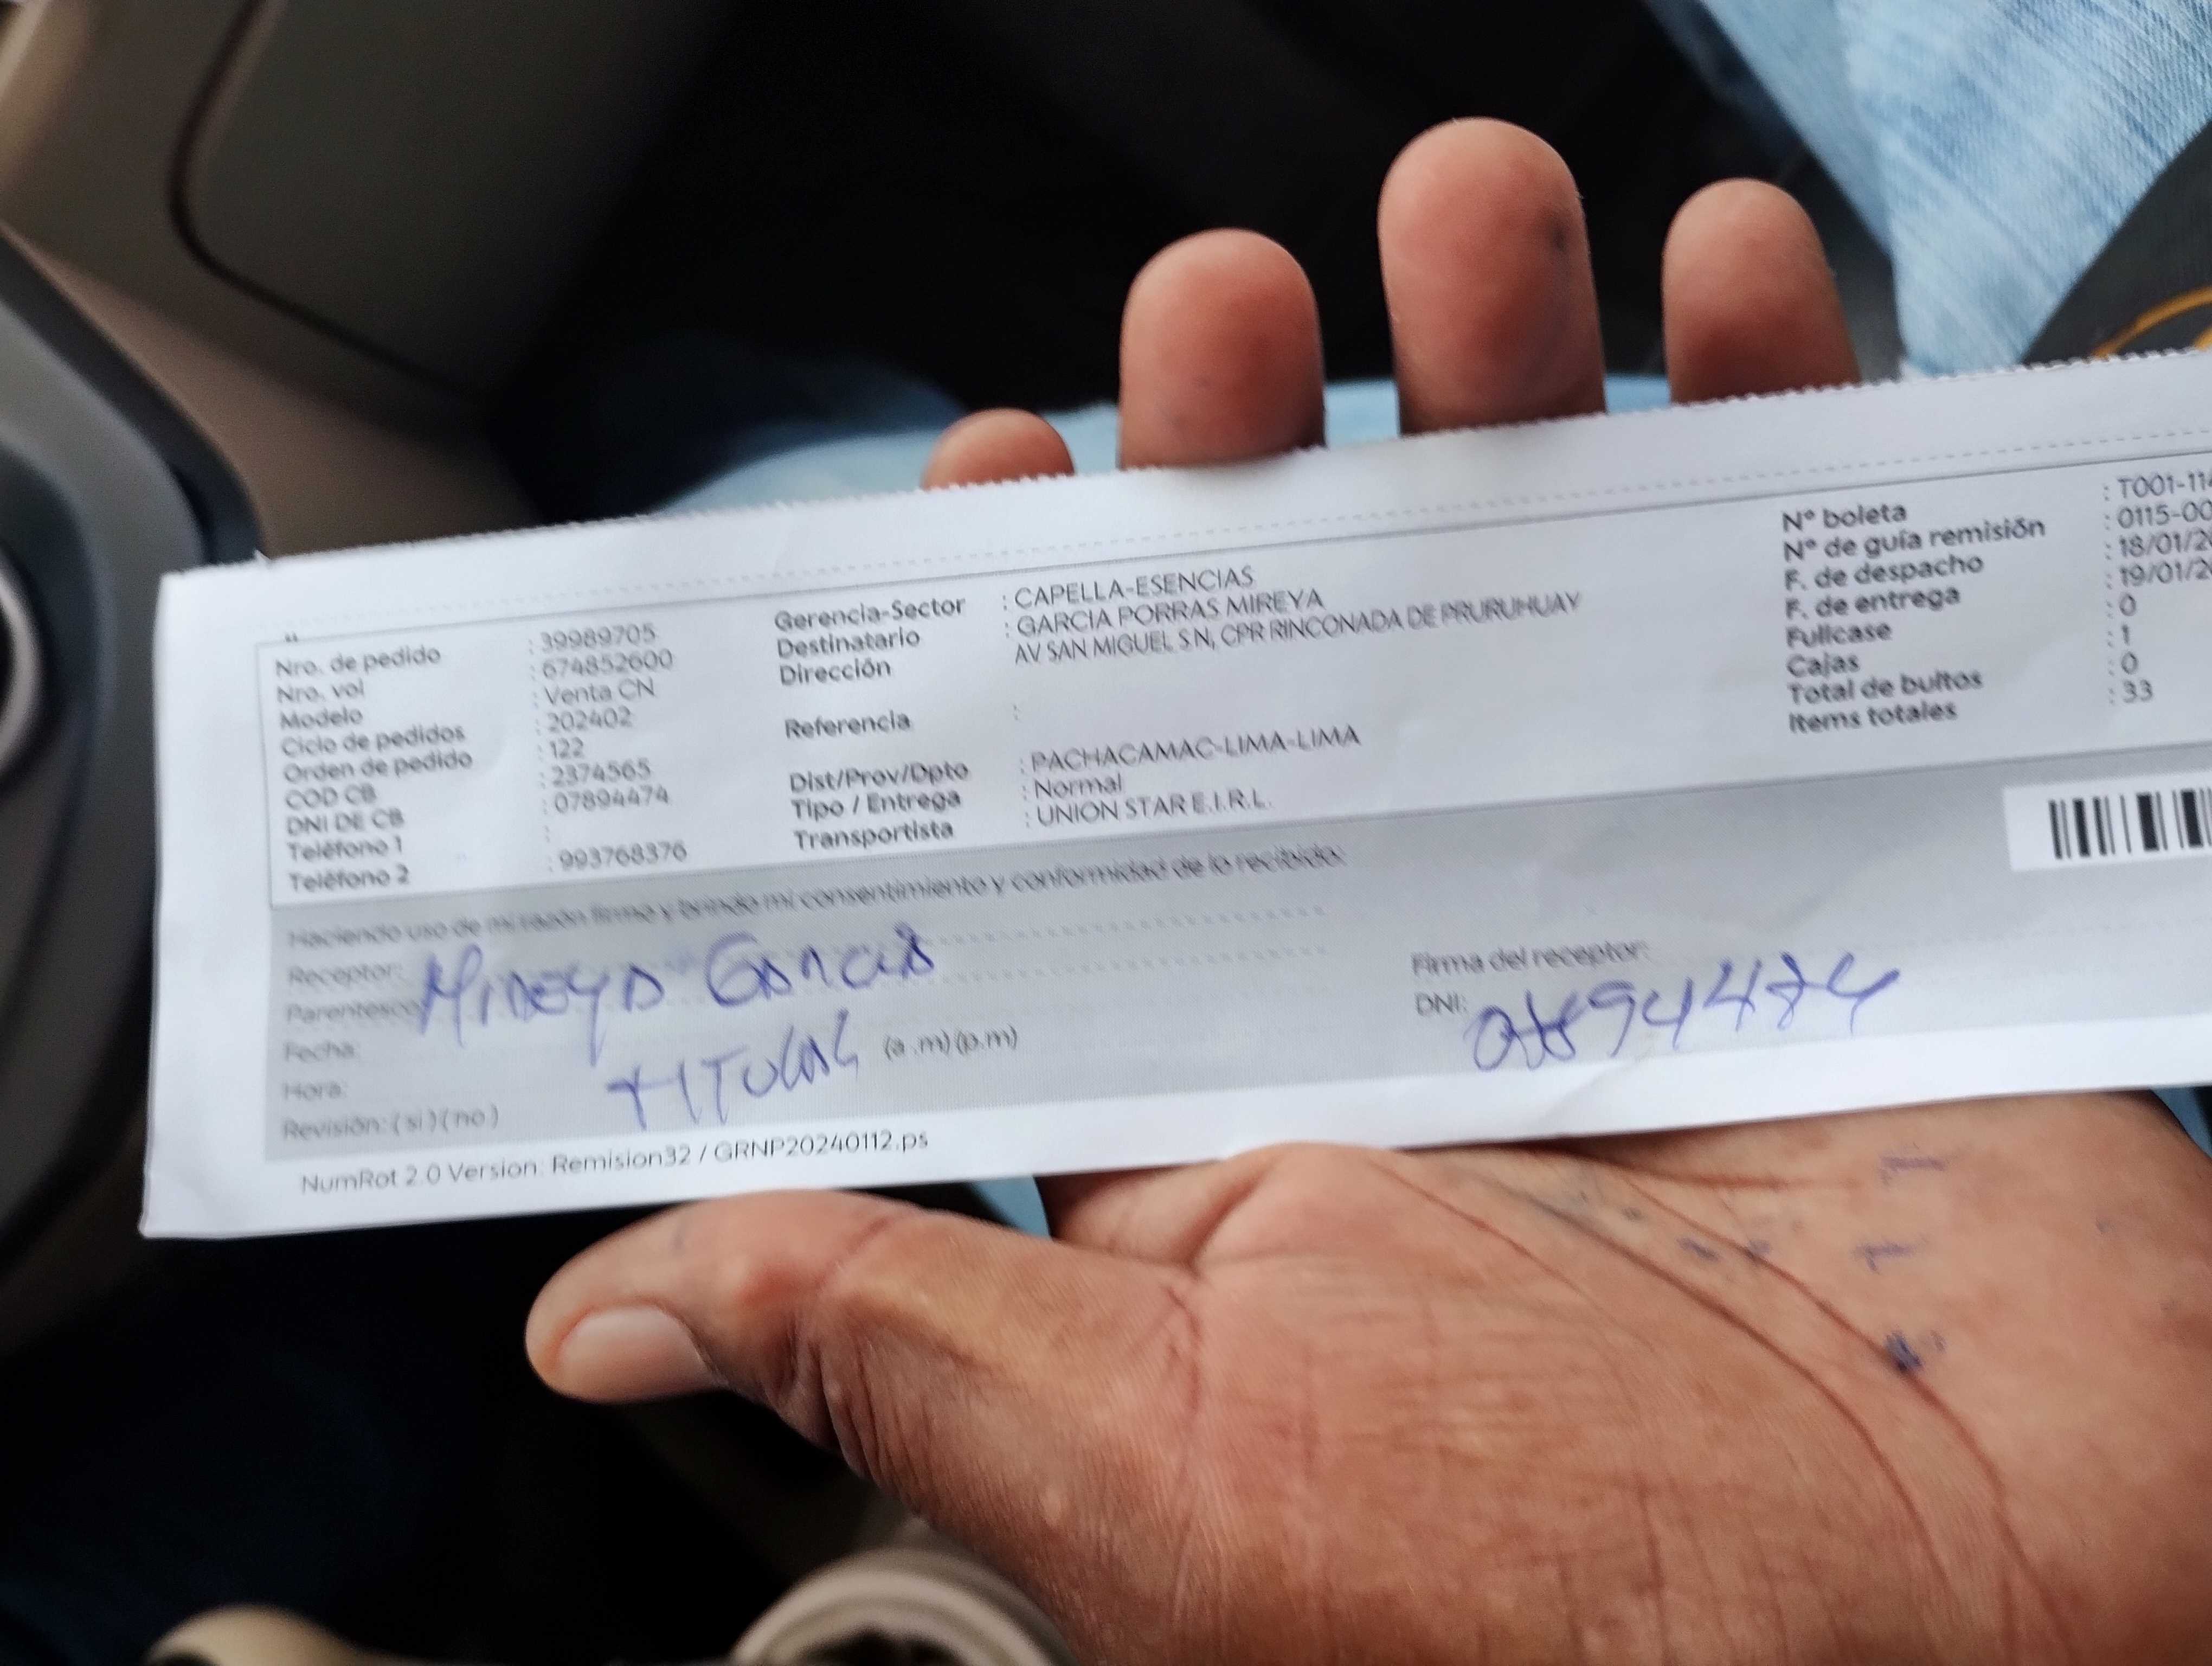 Nro. de pedido : 39989705
Nro. vol : 674852600
Modelo : Venta CN
Ciclo de pedidos : 202402
Orden de pedido : 122
COD CB : 2374565
DNI DE CB : 07894474
Teléfono 1 :
Teléfono 2 : 993768376
Gerencia-Sector : CAPELLA-ESENCIAS
Destinatario : GARCIA PORRAS MIREYA
Dirección AV SAN MIGUEL S N, CPR RINCONADA DE PRURUHUAY
Referencia :
Dist/Prov/Dpto : PACHACAMAC-LIMA-LIMA
Tipo / Entrega : Normal
Transportista : UNION STAR E.I.R.L.
N° boleta : T001-114
N° de guía remisión : 0115-00
F. de despacho : 18/01/20
F. de entrega : 19/01/20
Fullcase : 0
Cajas : 1
Total de bultos : 0
Items totales : 33
Haciendo uso de mi razón firmo y brindo mi consentimiento y conformidad de lo recibido:
Receptor: Mireya Garcia
Parentesco
Fecha:
Hora: TITULAR (a .m) (p.m)
Revisión: ( si ) ( no )
Firma del receptor:
DNI: 07894474
NumRot 2.0 Version: Remision32 / GRNP20240112.ps